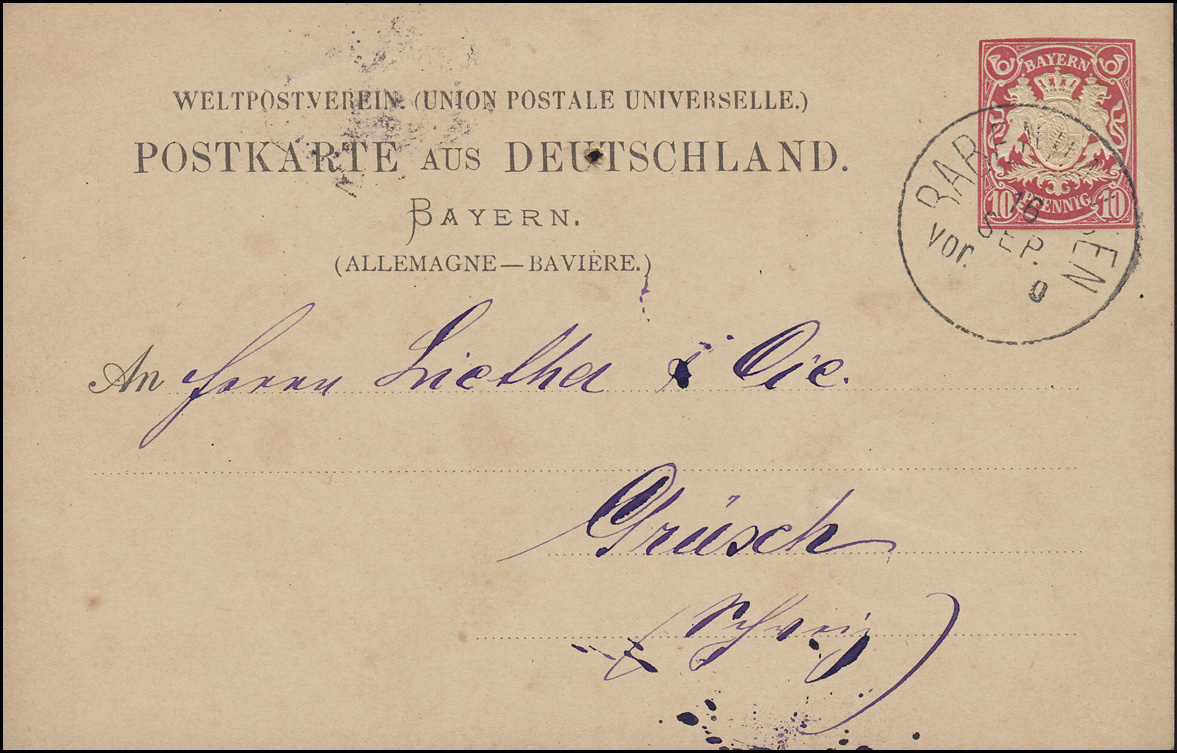 WELTPOSTVEREIN. (UNION POSTALE UNIVERSELLE.)
POSTKARTE AUS DEUTSCHLAND.
BAYERN.
(ALLEMAGNE—BAVIÈRE.)
BAYERN
10 PFENNIG 10
16
SEP.
Vor.
An Herrn Lietha & Cie.
Grüsch
(Schweiz)